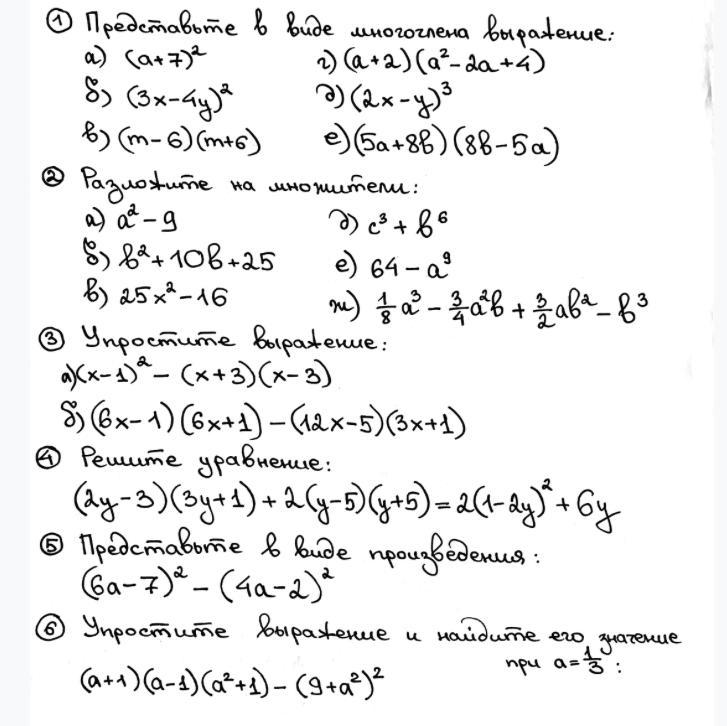 ① Представьте в виде многочлена выражение:
а) (a+7)² г) (a+2)(a²-2a+4)
б) (3x-4y)² д) (2x-y)³
в) (m-6)(m+6) е) (5a+8b)(8b-5a)
② Разложите на множители:
а) a²-9 д) c³+b⁶
б) b²+10b+25 е) 64-a⁹
в) 25x²-16 ж) 1/8a³-3/4a²b+3/2ab²-b³
③ Упростите выражение:
а) (x-1)²-(x+3)(x-3)
б) (6x-1)(6x+1)-(12x-5)(3x+1)
④ Решите уравнение:
(2y-3)(3y+1)+2(y-5)(y+5)=2(1-2y)²+6y
⑤ Представьте в виде произведения:
(6a-7)²-(4a-2)²
⑥ Упростите выражение и найдите его значение
при a=1/3:
(a+1)(a-1)(a²+1)-(9+a²)²